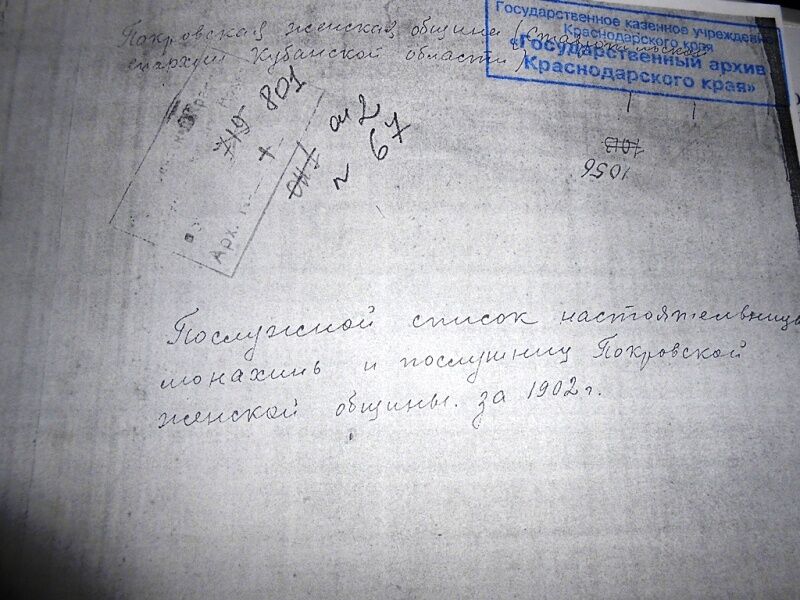 Покровская женская община (Ставропольской
епархии Кубанской области)
Государственное казенное учреждение
Краснодарского края
«Государственный архив
Краснодарского края»
801
оп 2
N 67
Арх.
1013
1056
Послужной список настоятельницы
монахинь и послушниц Покровской
женской общины. за 1902 г.